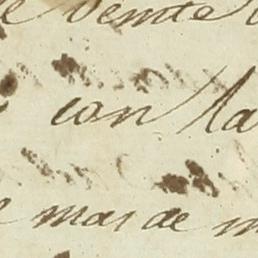 de veinte
con la
mas de m